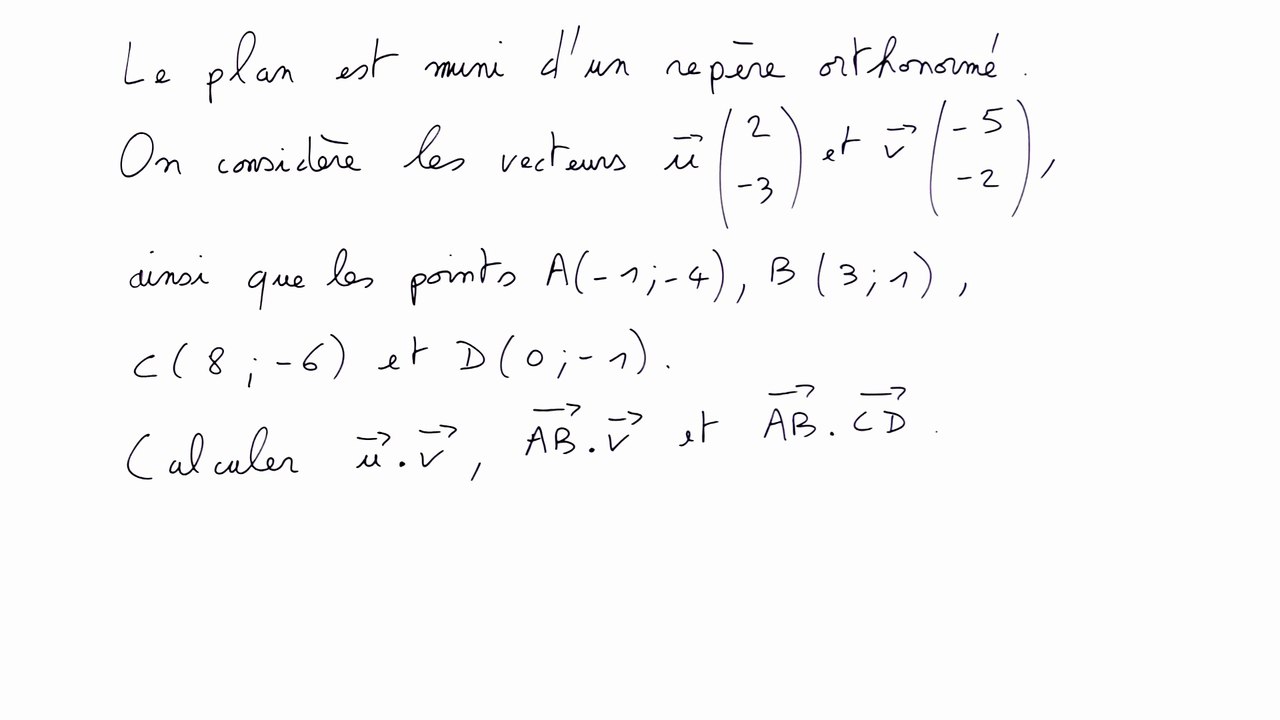 Le plan est muni d'un repère orthonormé.
On considère les vecteurs $\vec{u}\begin{pmatrix} 2 \\ -3 \end{pmatrix}$ et $\vec{v}\begin{pmatrix} -5 \\ -2 \end{pmatrix}$,
ainsi que les points A(-1;-4), B(3;1),
C(8;-6) et D(0;-1).
Calculer $\vec{u}.\vec{v}$, $\overrightarrow{AB}.\vec{v}$ et $\overrightarrow{AB}.\overrightarrow{CD}$.